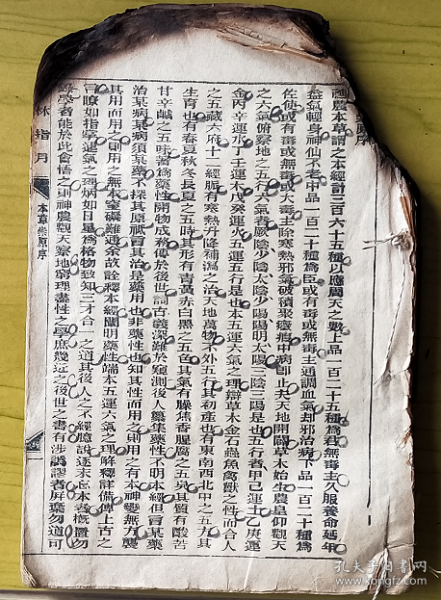 農本草謂之本經計三百六十五種以應周天之數上品一百二十五種爲君無毒主久服養命延年
益氣輕身神仙不老中品一百二十種爲臣或有毒或無毒主通調血氣却邪治病下品一百二十種爲
佐使或有毒或無毒或大毒主除寒熱邪氣破積聚癥瘕中病卽止夫天地開闢草木始生農皇仰觀天
之六氣俯察地之五行六氣者厥陰少陰太陰少陽陽明太陽三陰三陽是也五行者甲己運土乙庚運
金丙辛運水丁壬運木戊癸運火五運五行是也本五運六氣之理辯草木金石蟲魚禽獸之性而合人
之五藏六府十二經脈有寒熱升降補瀉之治天地萬物不外五行其初產也有東南西北中之五方其
生育也有春夏秋冬長夏之五時其形有青黃赤白黑之五色其氣有臊焦香腥腐之五臭其質有酸苦
甘辛鹹之五味著爲藥性開物成務傳於後世詞古義深難於窺測後人纂集藥性不明本經但言某藥
治某病某病須某藥不探其原祇言其治是藥用也非藥性也知其性而用之則用之有本神變無方襲
其用而用之則用之無本窒礙難通余故詮釋本經闡明藥性端本五運六氣之理解釋詳備俾上古之
言瞭如指掌運氣之理炳如日星爲格物致知三才合一之道其後人之不經臆說逐末忘本者概置勿
學者能於此會悟之則神農觀天察地窮理盡性之學庶幾近之後世之書有涉訛謬者屏棄勿道可
林指月
本草崇原序
孔夫子旧书网
www.kongfz.com